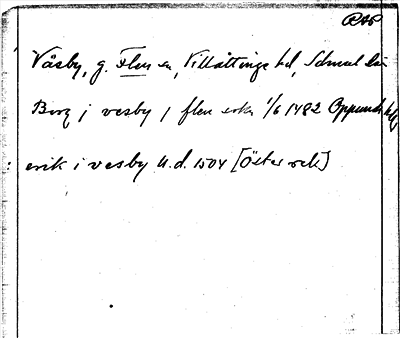 RAP
Våsby, g. Flen sn, Villåttinge hd, Södml län
Berg j vesby j flen sokn 1/6 1482 Oppunda hd
erik i vesby u.d. 1504 [Öster rek]